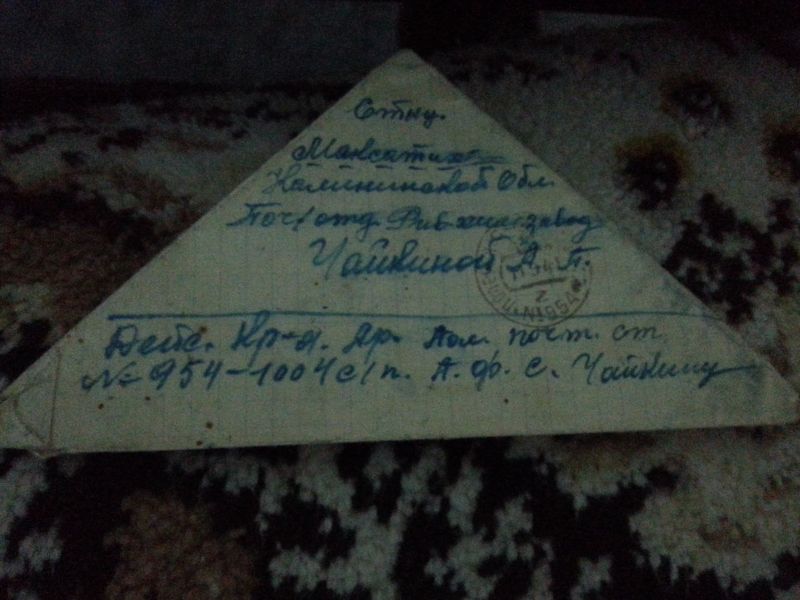 Стну.
Максатиха
Калининской Обл.
Поч/отд. завод
Чайкиной А. П.
Дейс. Кр-я. Ар. почт. ст.
№ 954-1004 с/п. А. Ф. С. Чайкину